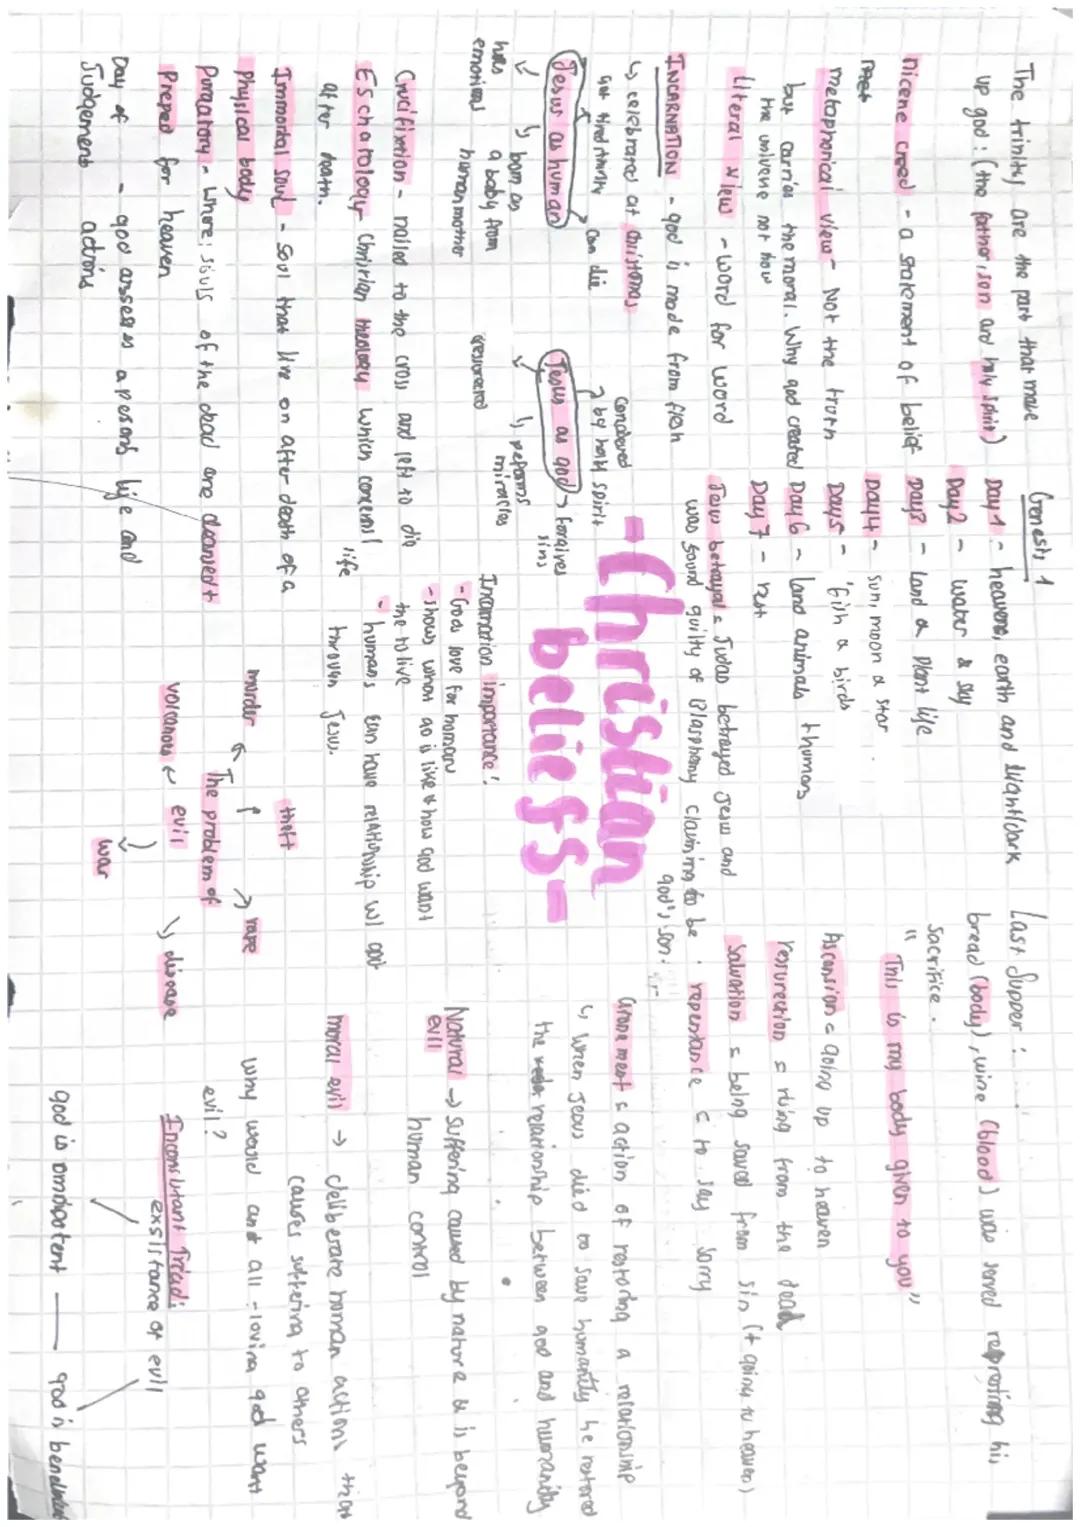 The trinity are the part that make
up god: (the father, son and holy spirit)
Nicene creed - a statement of belief
metaphorical view - Not the truth
but carries the moral. Why god created
the universe not how
Literal view - word for word
INCARNATION - god is made from flesh
↳ celebrated at christmas
got tired & thirsty
Can die
Jesus as human
has emotions
born as a baby from human mother
Conceived by holy spirit
Jesus as god → forgives sins
resurrected
↳ peforms miracles
Crucifixtion - nailed to the cross and left to die
Eschatology - Christian theology which concerns life
after death.
Immortal soul - soul that live on after death of a
physical body
Purgatory - where; souls of the dead are cleansed +
Preped for heaven
Day of - god assesses a persons life and
Judgement actions
Genesis 1
Day 1 - heavens, earth and light/dark
Day 2 - water & sky
Day 3 - Land & plant life
Day 4 - sun, moon & star
Day 5 - fish & birds
Day 6 - land animals + humans
Day 7 - rest
Jesus betrayal = Judas betrayed Jesus and
was found guilty of Blasphemy claiming to be
god's son.
-Christian
beliefs-
Incarnation importance:
- Gods love for human
- shows what go is like & how god want
the to live
- humans can have relationship w/ god
through Jesus.
theft
murder
rape
The problem of
evil
volcanoes
war
disease
Last Supper:
bread (body), wine (blood) was served represting his
Sacrifice.
"This is my body given to you"
Ascension = going up to heaven
resurection = rising from the dead
Salvation = being saved from sin (+ going to heaven)
repentance = to say sorry
atonement = action of restoring a relationship
↳ When Jesus died to save humanity he restored
the relationship between god and humanity
Natural → Suffering caused by nature & is beyond
evil human control
moral evil → deliberate human actions that
causes suffering to others
Why would an all-loving god want
evil?
Inconsistant Triad:
exsistance of evil
god is omnipotent — god is